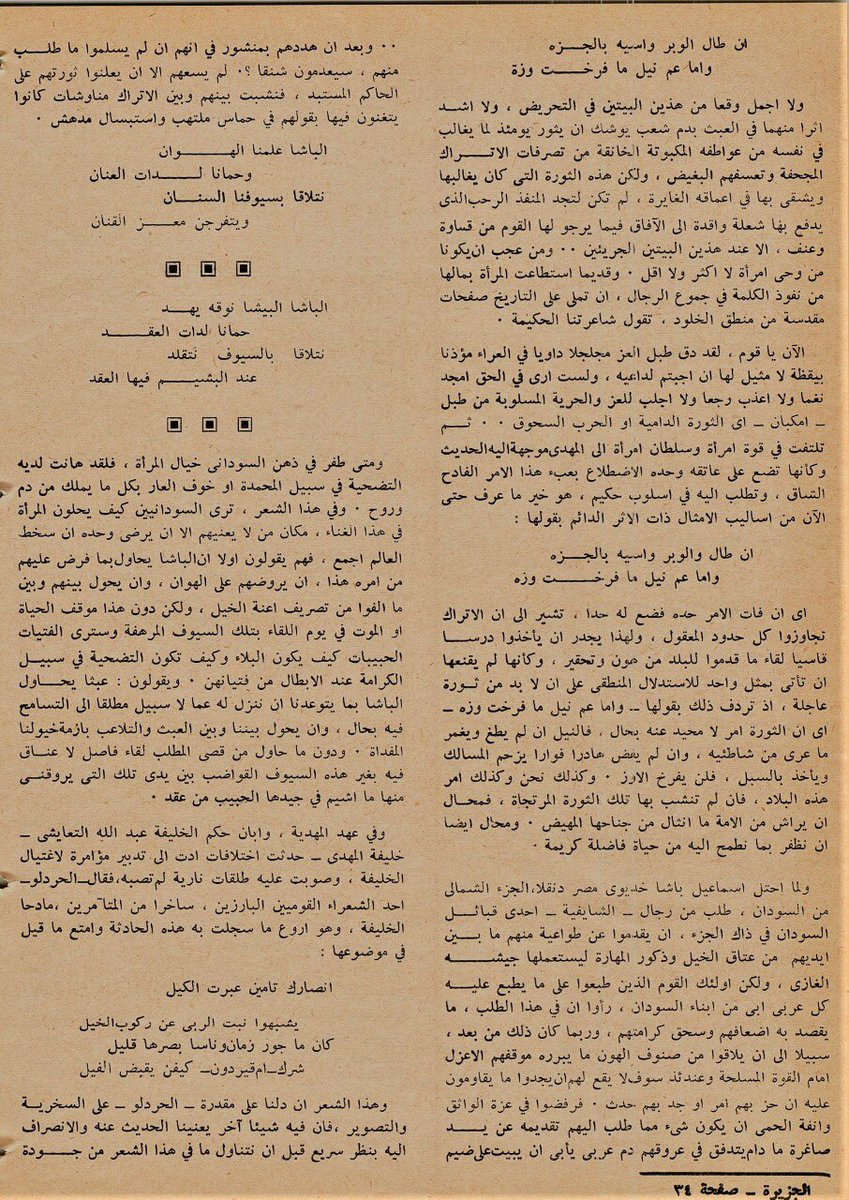 ان طال الوبر واسيه بالجـــزه
واما عم نيل ما فرخـــت وزة
ولا اجمل وقعا من هذين البيتين في التحريض ، ولا اشد
اثرا منهما في العبث بدم شعب يوشك ان يثور يومئذ لما يغالب
في نفسه من عواطفه المكبوتة الخانقة من تصرفات الاتـــراك
المجحفة وتعسفهم البغيض ، ولكن هذه الثورة التى كان يغالبها
ويشقى بها في اعماقه الغايرة ، لم تكن لتجد المنفذ الرحب الذى
يدفع بها شعلة واقدة الى الآفاق فيما يرجو لها القوم من قساوة
وعنف ، الا عند هذين البيتين الجريئين ٠٠ ومن عجب ان يكونا
من وحى امرأة لا اكثر ولا اقل ٠ وقديما استطاعت المرأة بمالها
من نفوذ الكلمة في جموع الرجال ، ان تملى على التاريخ صفحات
مقدسة من منطق الخلود ، تقول شاعرتنا الحكيمة ٠
الآن يا قوم ، لقد دق طبل العز مجلجلا داويا في العراء مؤذنا
بيقظة لا مثيل لها ان اجبتم لداعيه ، ولست ارى في الحق امجد
نغما ولا اعذب رجعا ولا اجلب للعز والحرية المسلوبة من طبل
ـ امكبان ـ اى الثورة الدامية او الحرب السحوق ٠ ٠ ثـــم
تلتفت في قوة امرأة وسلطان امرأة الى المهدى موجهة اليه الحديث
وكأنها تضع على عاتقه وحده الاضطلاع بعبء هذا الامر الفادح
الشاق ، وتطلب اليه في اسلوب حكيم ، هو خير ما عرف حتى
الآن من اساليب الامثال ذات الاثر الدائم بقولها :
ان طال والوبر واسيه بالجـــزه
واما عم نيل ما فرخـــت وزه
اى ان فات الامر حده فضع له حدا ، تشير الى ان الاتراك
تجاوزوا كل حدود المعقول ، ولهذا يجدر ان يأخذوا درســـا
قاسيا لقاء ما قدموا للبلد من هون وتحقير ، وكأنها لم يقنعها
ان تأتى بمثل واحد للاستدلال المنطقى على ان لا بد من ثـورة
عاجلة ، اذ تردف ذلك بقولها ـ واما عم نيل ما فرخت وزه ـ
اى ان الثورة امر لا محيد عنه بحال ، فالنيل ان لم يطغ ويغمر
ما عرى من شاطئيه ، وان لم يفض هادرا فوارا يزحم المسالك
ويأخذ بالسبل ، فلن يفرخ الاوز ٠ وكذلك نحن وكذلك امر
هذه البلاد ، فان لم تنشب بها تلك الثورة المرتجاة ، فمحـال
ان يراش من الامة ما انثال من جناحها المهيض ٠ ومحال ايضا
ان نظفر بما نطمح اليه من حياة فاضلة كريمة ٠
ولما احتل اسماعيل باشا خديوى مصر دنقلا، الجزء الشمالى
من السودان ، طلب من رجال ـ الشايقية ـ احدى قبائـل
السودان في ذاك الجزء ، ان يقدموا عن طواعية منهم ما بـين
ايديهم من عتاق الخيل وذكور المهارة ليستعملها جيشـــه
الغازى ، ولكن اولئك القوم الذين طبعوا على ما يطبع عليـــه
كل عربى ابى من ابناء السودان ، رأوا ان في هذا الطلب ، ما
يقصد به اضعافهم وسحق كرامتهم ، وربما كان ذلك من بعد ،
سبيلا الى ان يلاقوا من صنوف الهون ما يبرره موقفهم الاعزل
امام القوة المسلحة وعندئذ سوف لا يقع لهم ان يجدوا ما يقاومون
عليه ان حز بهم امر او جد بهم حدث ٠ فرفضوا في عزة الواثق
وانفة الحمى ان يكون شىء مما طلب اليهم تقديمه عن يـــد
صاغرة ما دام يتدفق في عروقهم دم عربى يأبى ان يبيت على ضيم
٠٠ وبعد ان هددهم بمنشور في انهم ان لم يسلموا ما طلـــب
منهم ، سيعدمون شنقا ؟٠ لم يسعهم الا ان يعلنوا ثورتهم على
الحاكم المستبد ، فنشبت بينهم وبين الاتراك مناوشات كانوا
يتغنون فيها بقولهم في حماس ملتهب واستبسال مدهش ٠
الباشا علمنا الهـــــوان
وحمانا لـــدات العنان
نتلاقا بسيوفنا السنـــان
ويتفرجن معـــز القنان
الباشا البيشا نوقه يهـــد
حمانا لدات العقـــد
نتلاقا بالسيوف نتقلد
عند البشيـــم فيها العقد
ومتى طفر في ذهن السودانى خيال المرأة ، فلقد هانت لديه
التضحية في سبيل المحمدة او خوف العار بكل ما يملك من دم
وروح ٠ وفي هذا الشعر ، ترى السودانيين كيف يحلون المرأة
في هذا الغناء ، مكان من لا يعنيهم الا ان يرضى وحده ان سخط
العالم اجمع ، فهم يقولون اولا ان الباشا يحاول بما فرض عليهم
من امره هذا ، ان يروضهم على الهوان ، وان يحول بينهم وبين
ما الفوا من تصريف اعنة الخيل ، ولكن دون هذا موقف الحياة
او الموت في يوم اللقاء بتلك السيوف المرهفة وسترى الفتيات
الحبيبات كيف يكون البلاء وكيف تكون التضحية في سبيـل
الكرامة عند الابطال من فتيانهن ٠ ويقولون : عبثا يحـــاول
الباشا بما يتوعدنا ان ننزل له عما لا سبيل مطلقا الى التسامح
فيه بحال ، وان يحول بيننا وبين العبث والتلاعب بازمة خيولنا
المفداة ٠ ودون ما حاول من قصى المطلب لقاء فاصل لا عنـاق
فيه بغير هذه السيوف القواضب بين يدى تلك التى يروقنـى
منها ما اشيم في جيدها الحبيب من عقد ٠
وفي عهد المهدية ، وابان حكم الخليفة عبد الله التعايشى ـ
خليفة المهدى ـ حدثت اختلافات ادت الى تدبير مؤامرة لاغتيال
الخليفة ، وصوبت عليه طلقات نارية لم تصبه، فقال ـ الحردلو ـ
احد الشعراء القوميين البارزين ، ساخرا من المتآمرين ، مادحا
الخليفة ، وهو اروع ما سجلت به هذه الحادثة وامتع ما قيل
في موضوعها :
انصارك تامين عبرت الكيل
يشبهوا نبت الربى عن ركوب الخيل
كان ما جور زمان وناسا بصرها قليل
شرك ـ ام قيردون ـ كيفن يقبض الفيل
وهذا الشعر ان دلنا على مقدرة ـ الحردلو ـ على السخرية
والتصوير ، فان فيه شيئا آخر يعنينا الحديث عنه والانصراف
اليه بنظر سريع قبل ان نتناول ما في هذا الشعر من جـــودة
الجزيرة ـ صفحة ٣٤